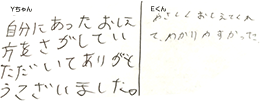 Yちゃん
自分にあったおしえ
方をさがしてい
ただいてありがと
うございました。
Eくん
やさしくおしえてくれ
て、わかりやすかった